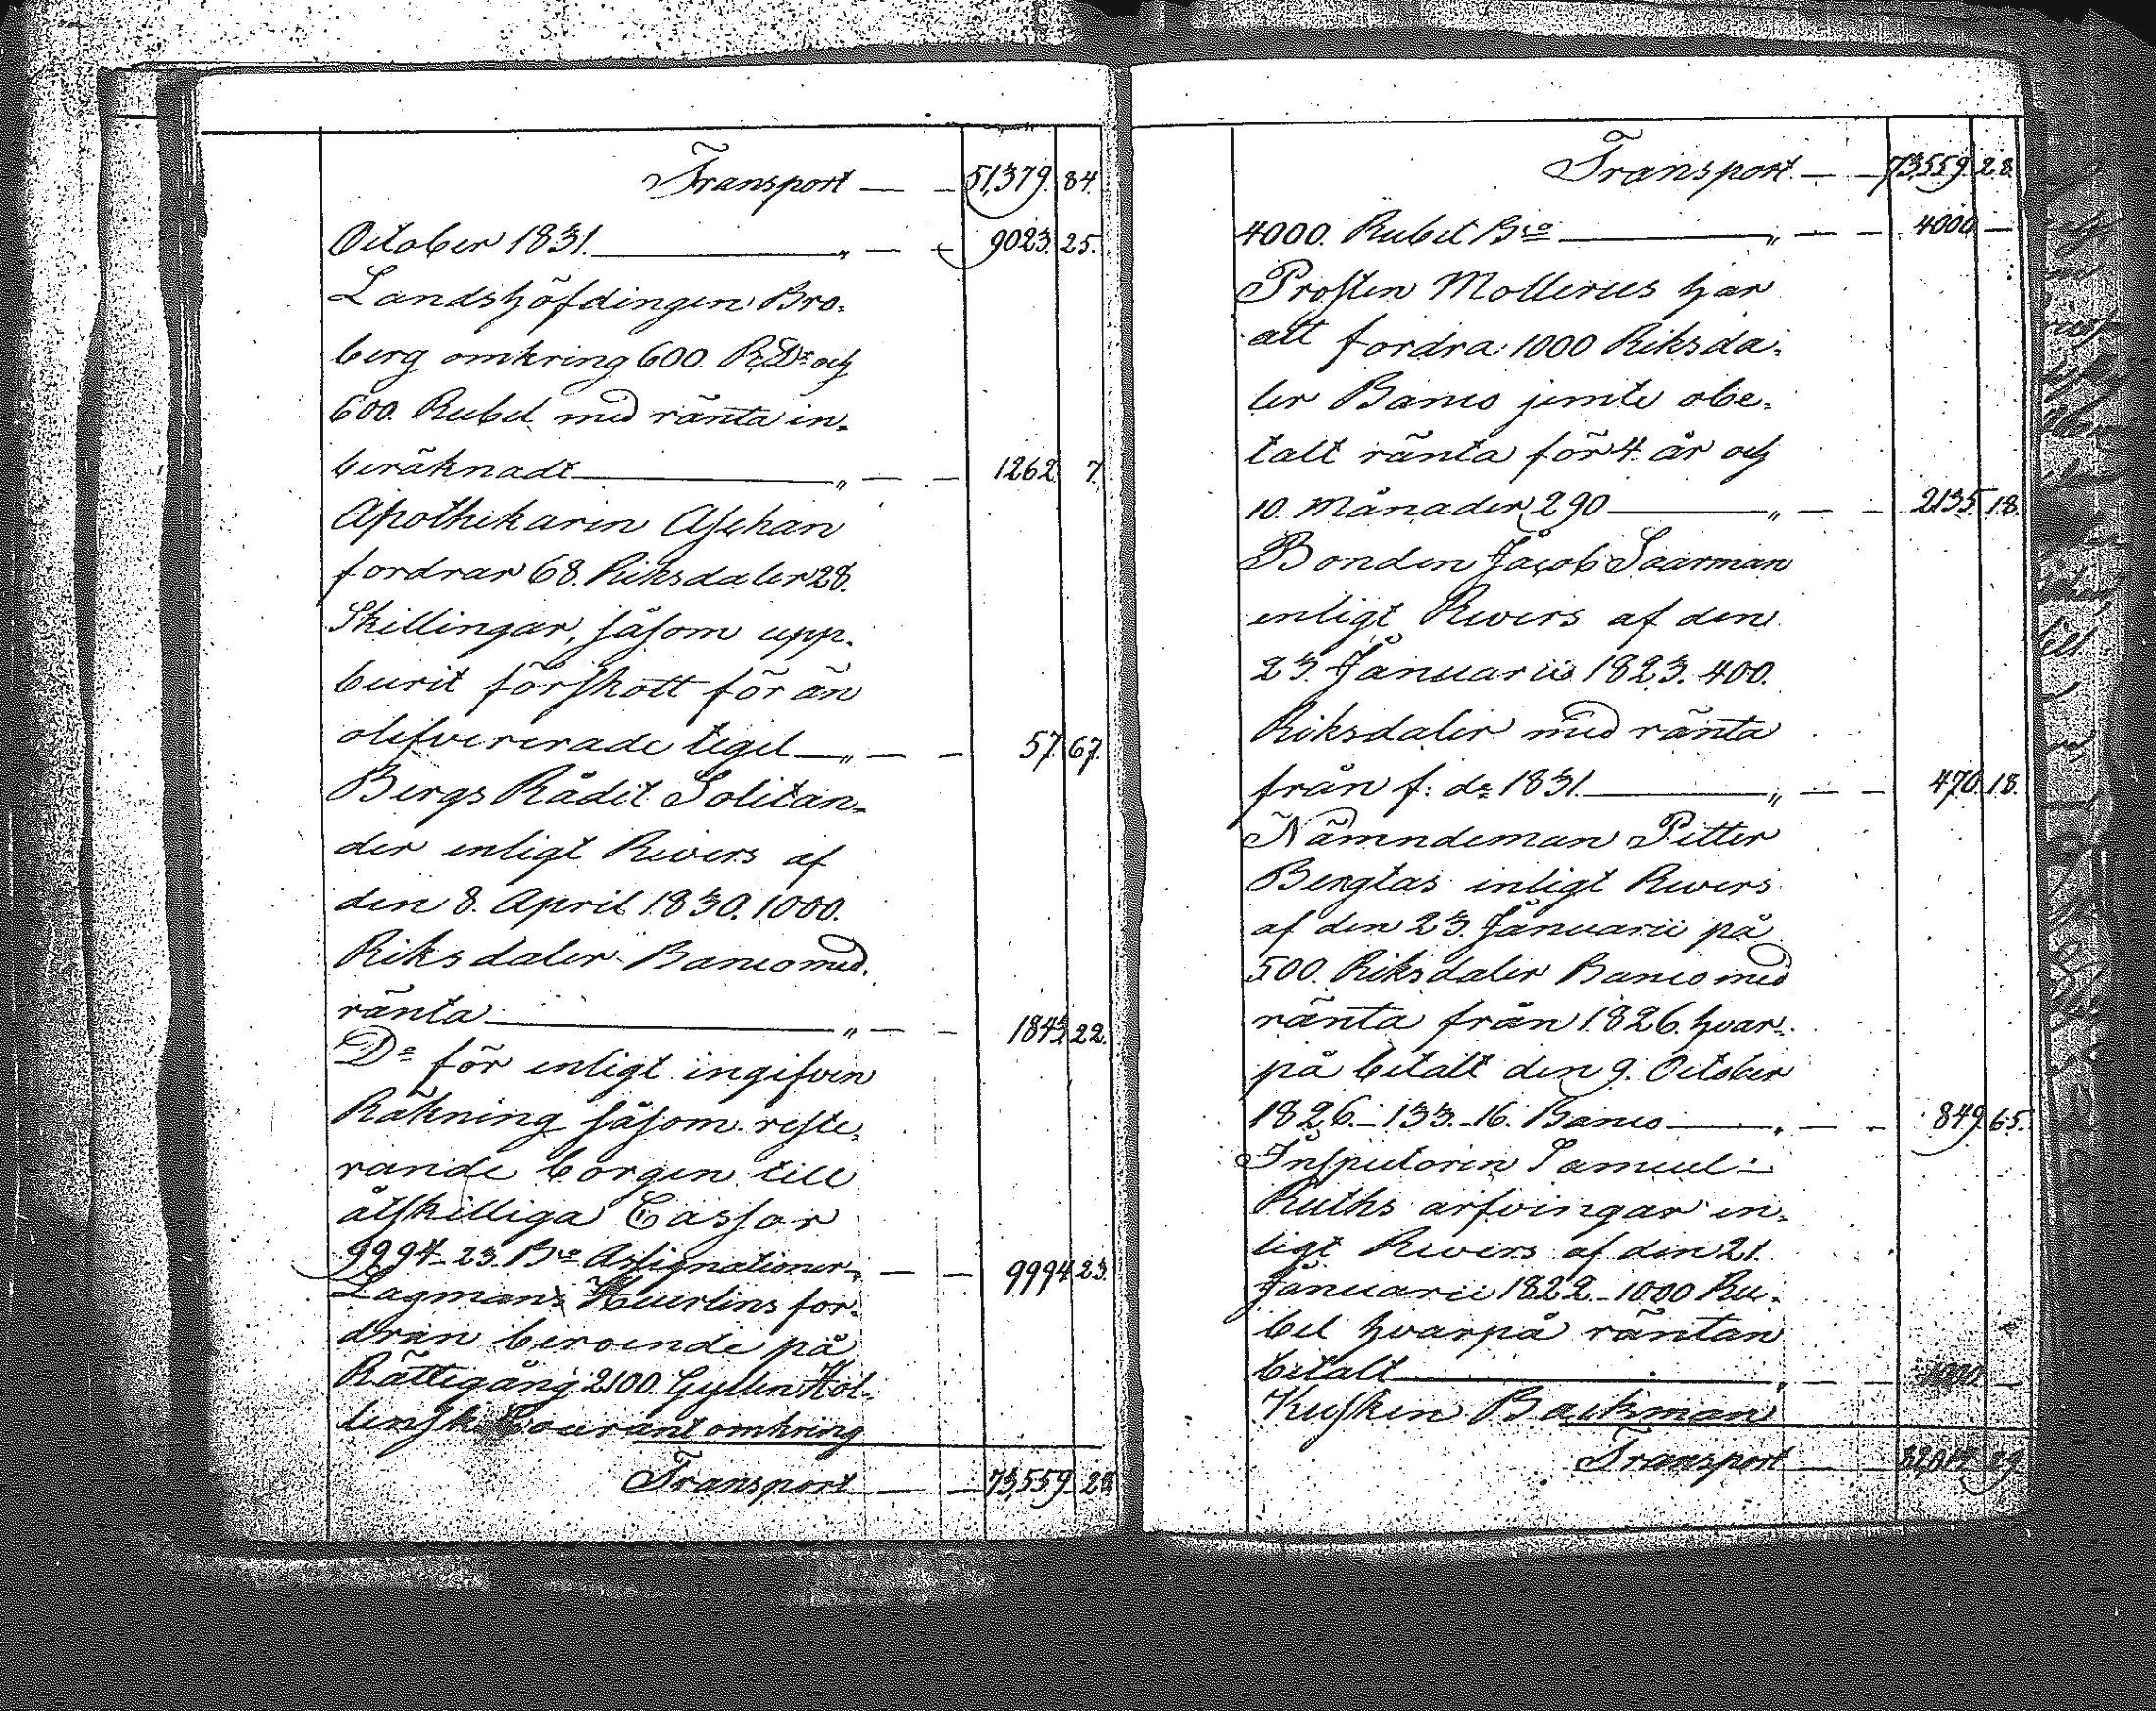 Transport — — 51,379. 84.
October 1831. ——— „ — — 9023. 25.
Landshöfdingen Bro-
berg omkring 600. R:Dr och
600. Rubel med ränta in-
beräknadt ——— „ — — 1262. 7.
Apothekaren Aschan
fordrar 68. Riksdaler 28.
Skillingar, såsom upp-
burit förskott för än
olefvererade tegel — „ — — 57. 67.
Bergs Rådet Solitan-
der enligt Revers af
den 8. April 1830. 1000.
Riksdaler Banco med
ränta ——— „ — — 1843. 22.
Do för enligt ingifven
Räkning såsom reste-
rande borgen till
åtskilliga Cassor
9994 - 23. Bco Assignationer „ — — 9994 23.
Lagman Heurlins for-
dran beroende på
Rättegång 2100. Gyllen Hol-
lenska Courant omkring
Transport — — 73,559. 28.
Transport — — 73559. 28.
4000. Rubel Bco ——— „ — — 4000 —
Prosten Mollerus har
att fordra 1000 Riksda-
ler Banco jemte obe-
talt ränta för 4 år och
10. Månader 290 ——— „ — — 2135. 18.
Bonden Jacob Saarman
enligt Revers af den
23. Januarii 1823. 400.
Riksdaler med ränta
från f: do 1831. ——— „ — — 470. 18.
Nämndeman Petter
Bengtas enligt Revers
af den 23. Januarii på
500. Riksdaler Banco med
ränta från 1826. hvar-
på betalt den 9. October
1826. - 133. - 16. Banco ——— „ — — 849 65.
Inspectoren Samuel
Ruths arfvingar en-
ligt Revers af den 21.
Januarii 1822. - 1000 Ru-
bel hvarpå räntan
betalt ——— „ — — 1000. —
Kusken Backman
Transport ——— 29.